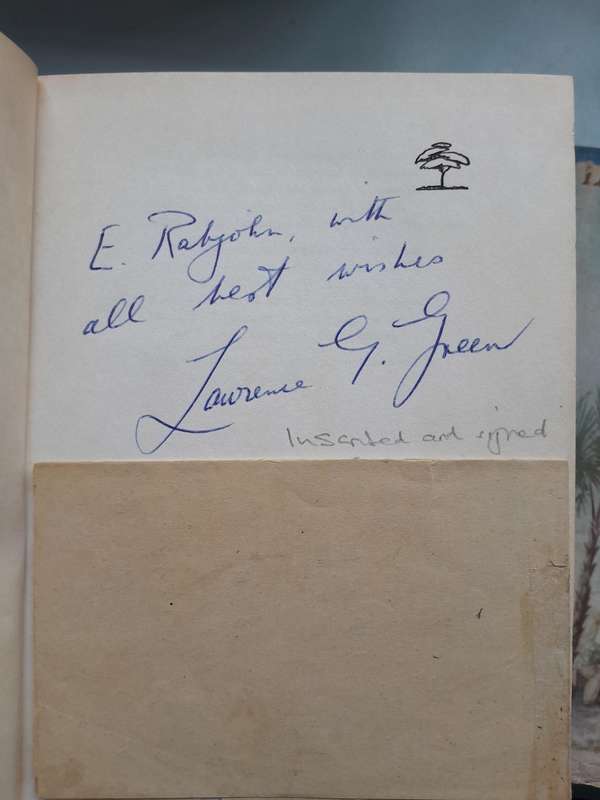 E. Rabjohn, with
all best wishes
Lawrence G. Green
Inscribed and signed